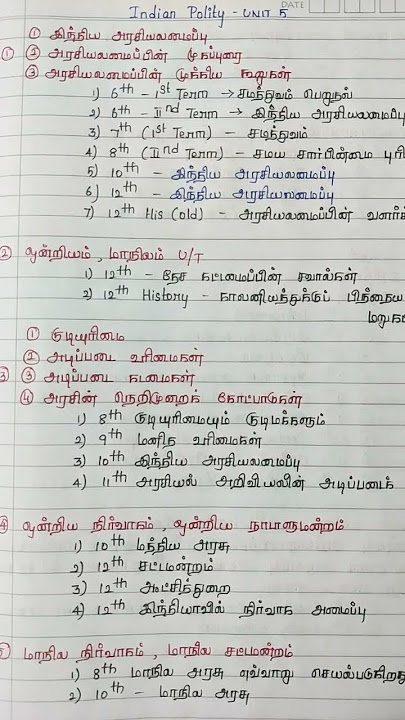 Indian Polity - UNIT 5
DATE
① இந்திய அரசியலமைப்பு
① ② அரசியலமைப்பின் முகப்புரை
③ அரசியலமைப்பின் முக்கிய கூறுகள்
1) 6th - 1st Term → சமத்துவம் பெறுதல்
2) 6th - IInd Term → இந்திய அரசியலமைப்பு
3) 7th (1st Term) - சமத்துவம்
4) 8th (IInd Term) - சமய சார்பின்மை புரி
5) 10th - இந்திய அரசியலமைப்பு
6) 12th - இந்திய அரசியலமைப்பு
7) 12th His (old) - அரசியலமைப்பின் வளர்ச்
② ஒன்றியம், மாநிலம் U/T
1) 12th - தேச கட்டமைப்பின் சவால்கள்
2) 12th History - காலனியத்துக்குப் பிந்தைய
மறுக
① குடியுரிமை
② அடிப்படை உரிமைகள்
③ ③ அடிப்படை கடமைகள்
④ அரசின் நெறிமுறைக் கோட்பாடுகள்
1) 8th குடியுரிமையும் குடிமக்களும்
2) 9th மனித உரிமைகள்
3) 10th இந்திய அரசியலமைப்பு
4) 11th அரசியல் அறிவியலின் அடிப்படைக்
④ ஒன்றிய நிர்வாகம், ஒன்றிய நாடாளுமன்றம்
1) 10th மத்திய அரசு
2) 12th சட்டமன்றம்
3) 12th ஆட்சித்துறை
4) 12th இந்தியாவில் நிர்வாக அமைப்பு
⑤ மாநில நிர்வாகம், மாநில சட்டமன்றம்
1) 8th மாநில அரசு எவ்வாறு செயல்படுகிறது
2) 10th - மாநில அரசு